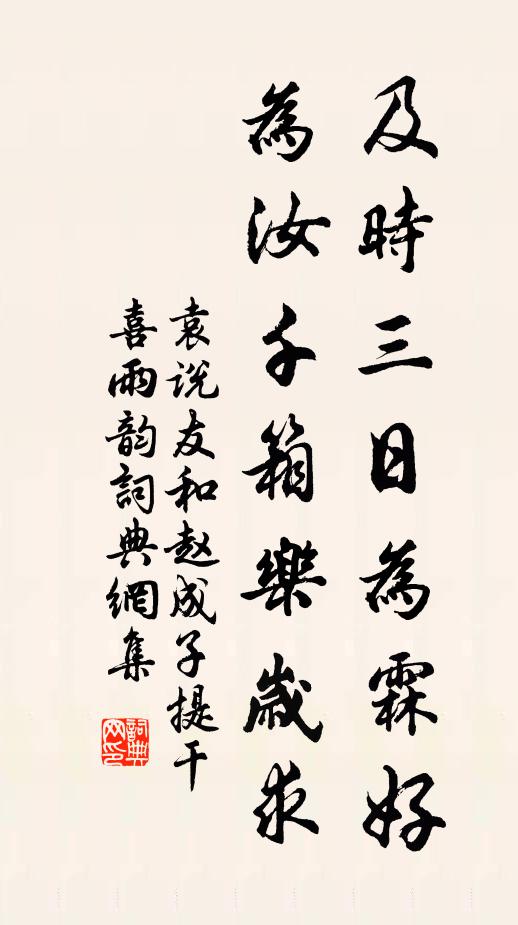 及時三日為霖好
為汝千箱樂歲求
袁说友和赵成子提干
喜雨韵詞典網集
詞典网印